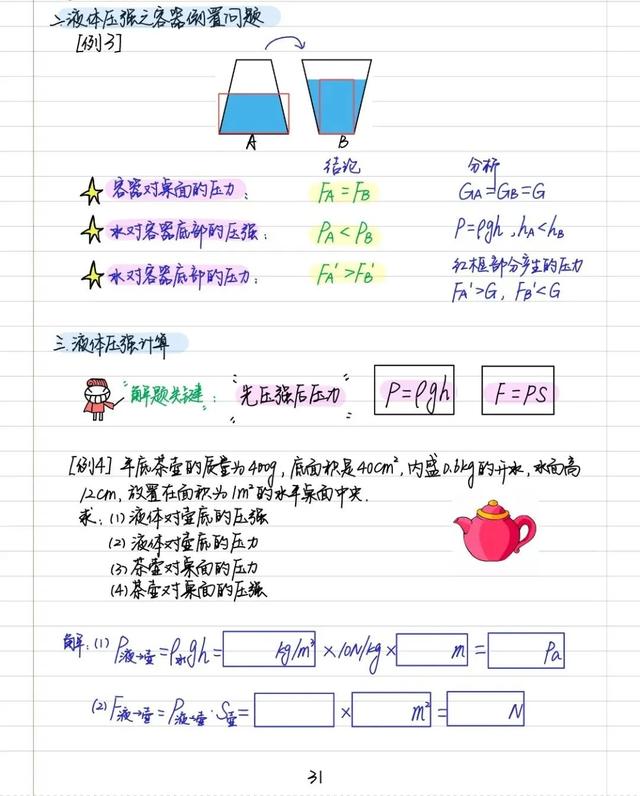 二.液体压强之容器倒置问题
[例3]
A B
结论 分析
容器对桌面的压力: FA=FB GA=GB=G
水对容器底部的压强: PA<PB P=ρgh,hA<hB
水对容器底部的压力: FA'>FB' 红框部分产生的压力
FA'>G, FB'<G
三.液体压强计算
"解题关键": "先压强后压力" P=ρgh F=PS
[例4] 平底茶壶的质量为400g,底面积是40cm²,内盛0.6kg的开水,水面高
12cm,放置在面积为1m²的水平桌面中央.
求:(1)液体对壶底的压强
(2)液体对壶底的压力
(3)茶壶对桌面的压力
(4)茶壶对桌面的压强
解:(1) P液→壶=ρ水gh= kg/m³ ×10N/kg× m = Pa
(2) F液→壶=P液→壶·S壶= × m² = N
31